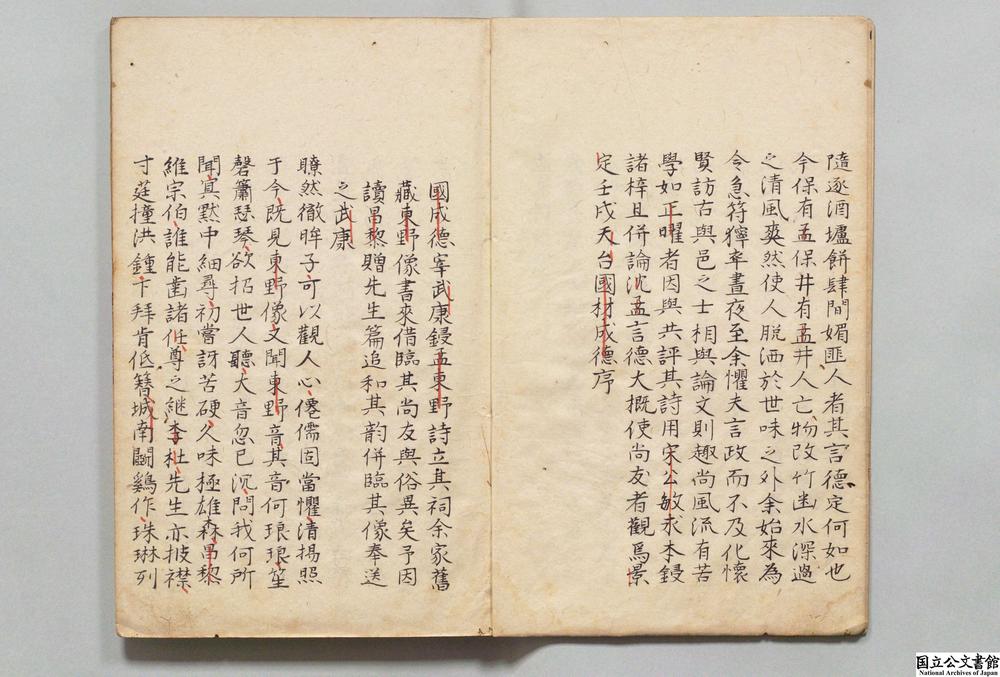 隨逐酒壚餅肆間媚匪人者其言德定何如也
今保有孟保井有孟井人亡物改竹幽水深過
之清風爽然使人脫洒於世味之外余始來為
令急符獰率晝夜至余懼夫言政而不及化懷
賢訪古與邑之士相與論文則趣尚風流有苦
學如正曜者因與共評其詩用宋公敏求本鋟
諸梓且併論沈孟言德大概使尚友者觀焉景
定壬戌天台國材成德序
國成德宰武康鋟孟東野詩立其祠余家舊
藏東野像書來借臨其尚友與俗異矣予因
讀昌黎贈先生篇追和其韵併臨其像奉送
之武康
瞭然徹眸子可以觀人心僊儒固當懼清揚照
于今既見東野像又聞東野音其音何琅琅笙
磬簫瑟琴欲招世人聽大音忽已沉問我何所
聞真黙中細尋初嘗訝苦硬久味極雄森昌黎
維宗伯誰能齒諸任尊之繼李杜先生亦披襟
寸莛撞洪鍾下拜肯低簪城南鬭鷄作珠琳列
国立公文書館
National Archives of Japan